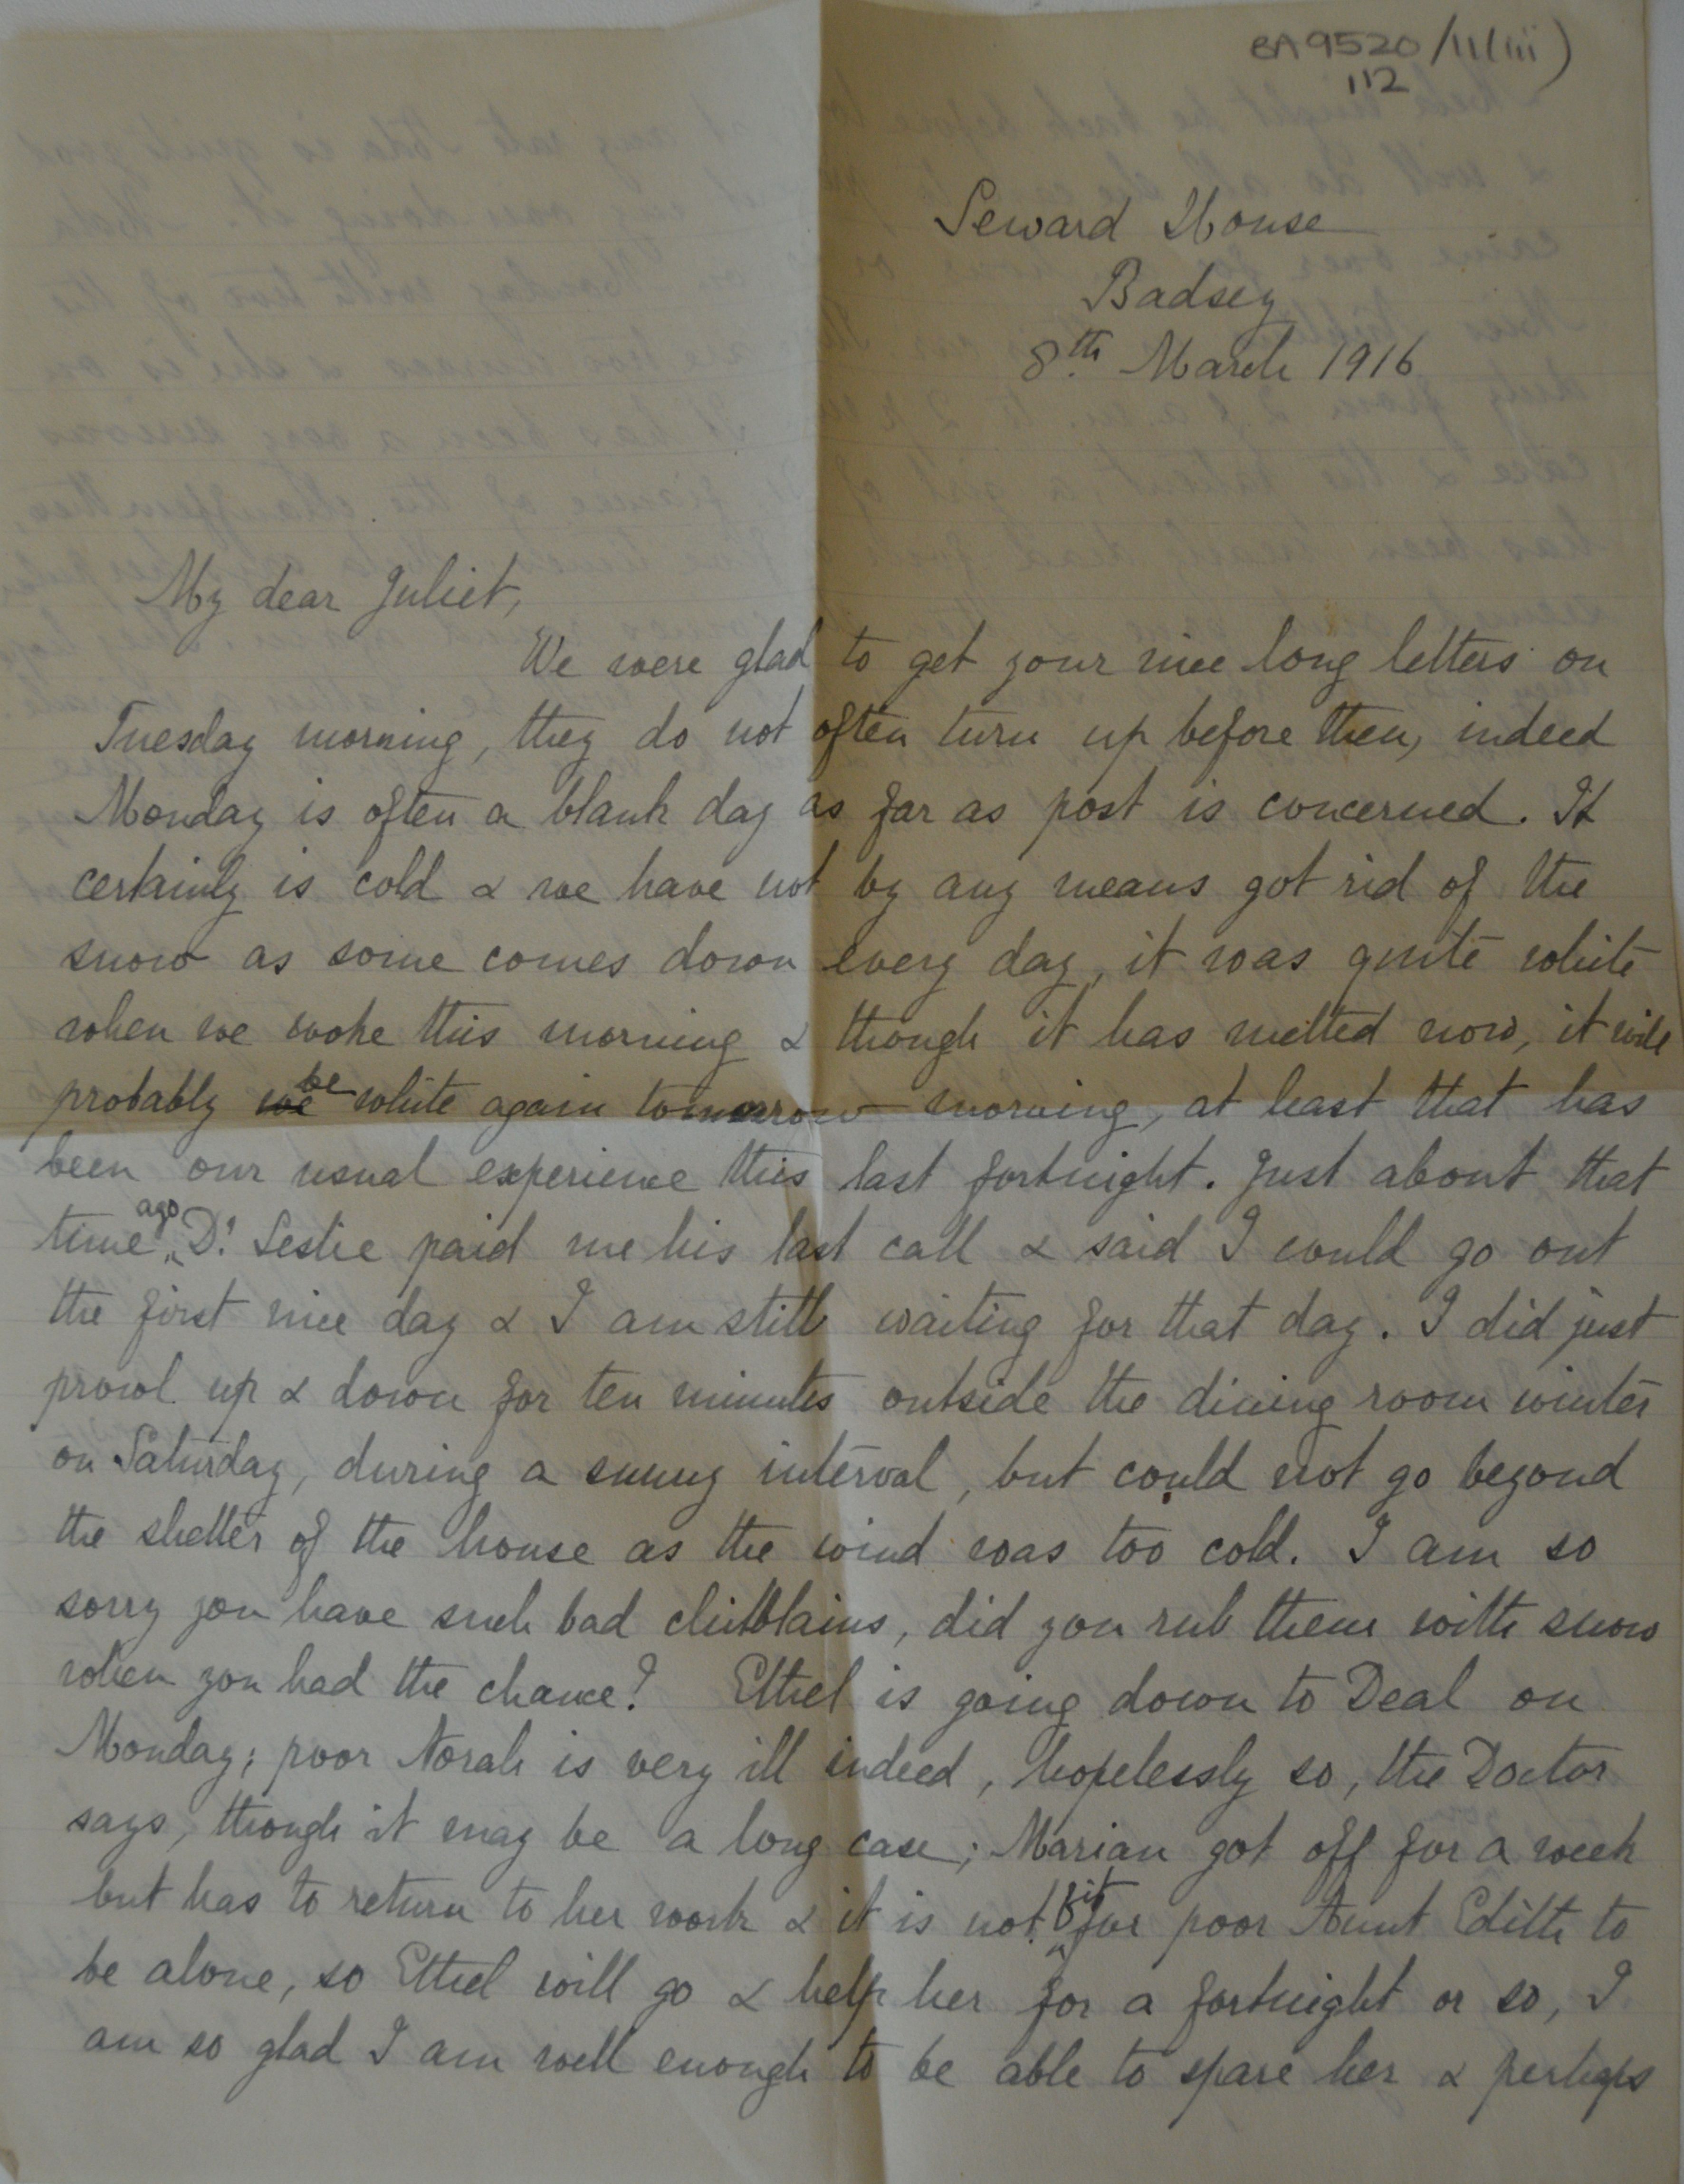 BA9520/11(iii)
112
Seward House
Badsey
8th March 1916
My dear Juliet,
We were glad to get your nice long letters on
Tuesday morning, they do not often turn up before then, indeed
Monday is often a blank day as far as post is concerned. It
certainly is cold & we have not by any means got rid of the
snow as some comes down every day, it was quite white
when we woke this morning & though it has melted now, it will
probably we be white again tomorrow morning, at least that has
been our usual experience this last fortnight. Just about that
time ago, Dr. Leslie paid me his last call & said I could go out
the first nice day & I am still waiting for that day. I did just
prowl up & down for ten minutes outside the dining room winter
on Saturday, during a sunny interval, but could not go beyond
the shelter of the house as the wind was too cold. I am so
sorry you have such bad chilblains, did you rub them with snow
when you had the chance? Ethel is going down to Deal on
Monday; poor Norah is very ill indeed, hopelessly so, the Doctor
says, though it may be a long case; Marian got off for a week
but has to return to her work & it is not fit for poor Aunt Edith to
be alone, so Ethel will go & help her for a fortnight or so, I
am so glad I am well enough to be able to spare her & perhaps